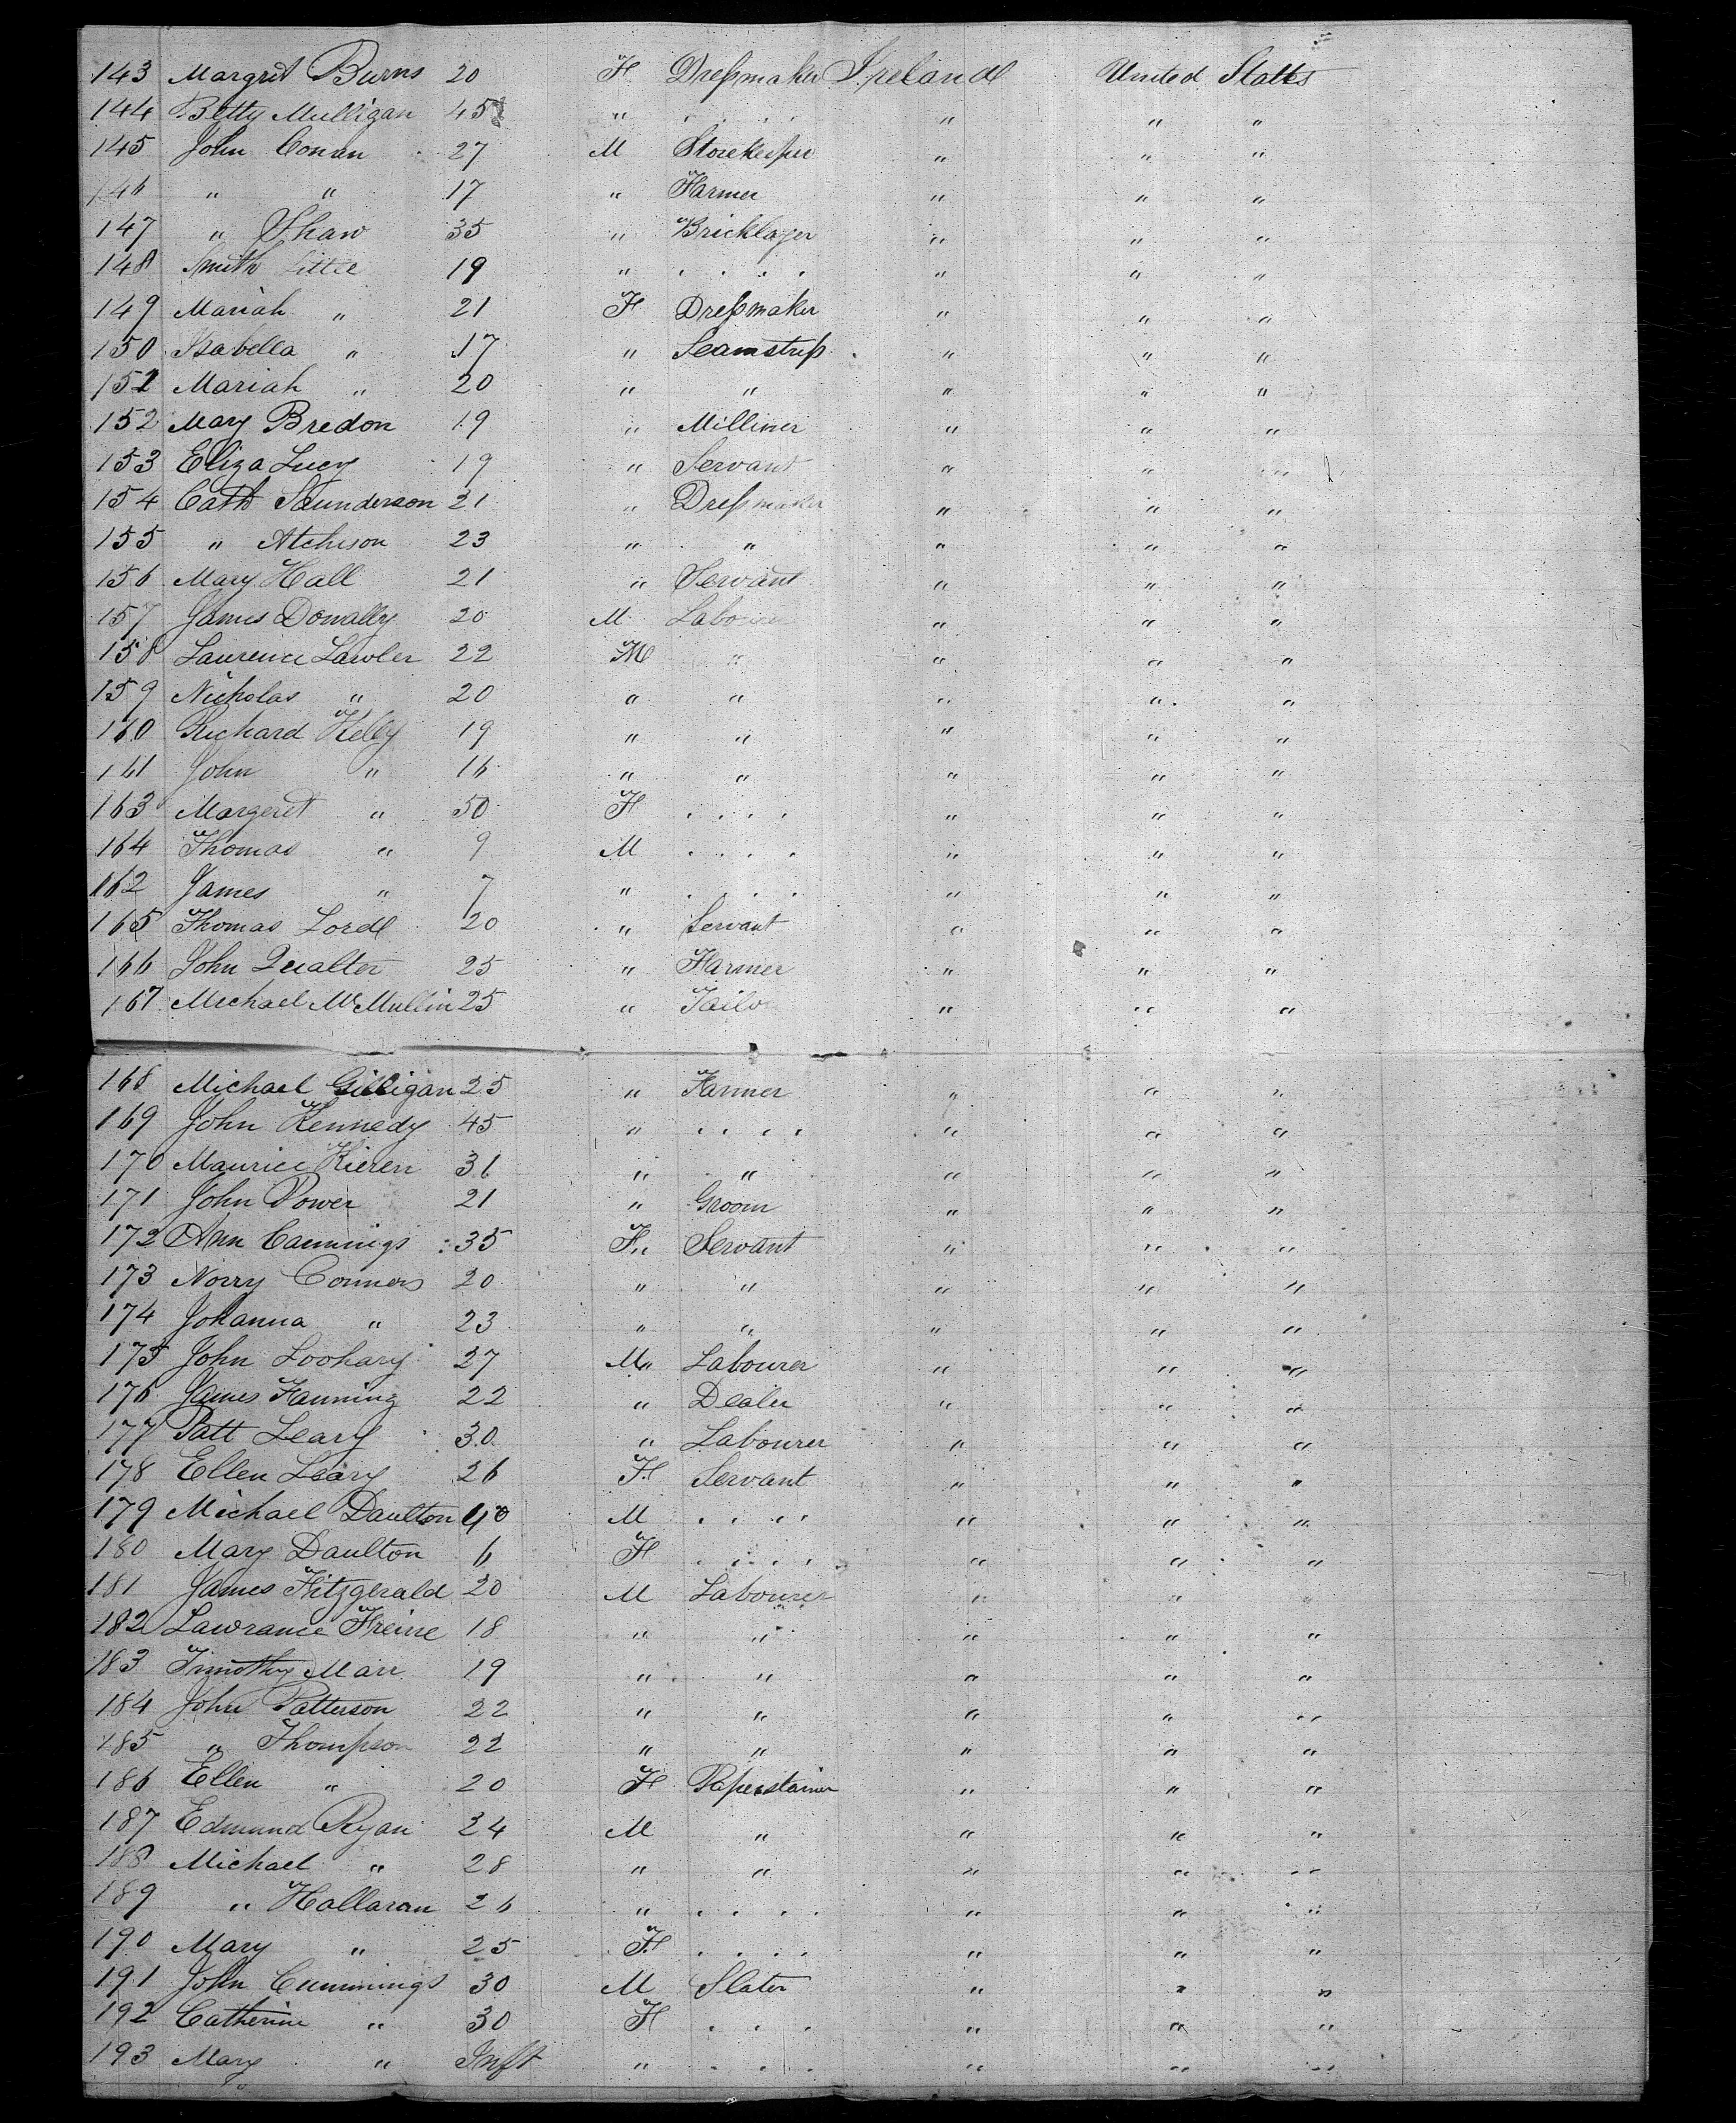 143 Margret Burns 20 F Dressmaker Ireland United States
144 Betty Mulligan 45 " . . . . " " "
145 John Conan 27 M Storekeeper " " "
146 " " 17 " Farmer " " "
147 " Shaw 35 " Bricklayer " " "
148 Smith Little 19 " . . . . " " "
149 Mariah " 21 F Dressmaker " " "
150 Isabella " 17 " Seamstress " " "
151 Mariah " 20 " " " " "
152 Mary Bredon 19 " Milliner " " "
153 Eliza Lucy 19 " Servant " " "
154 Cath Saunderson 21 " Dressmaker " " "
155 " Atchison 23 " " " " "
156 Mary Hall 21 " Servant " " "
157 James Donnally 20 M Labourer " " "
158 Laurence Lawler 22 M " " " "
159 Nicholas " 20 " " " " "
160 Richard Kelly 19 " " " " "
161 John " 16 " " " " "
163 Margeret " 50 F . . . . " " "
164 Thomas " 9 M . . . . " " "
162 James " 7 " . . . . " " "
165 Thomas Lord 20 " Servant " " "
166 John Qualter 25 " Farmer " " "
167 Michael McMullin 25 " Tailor " " "
168 Michael Gilligan 25 " Farmer " " "
169 John Kennedy 45 " . . . . " " "
170 Maurice Kieren 31 " " " " "
171 John Power 21 " Groom " " "
172 Ann Cannings 35 F " Servant " " "
173 Norry Connors 20 " " " " "
174 Johanna " 23 " " " " "
175 John Loohary 27 M " Labourer " " "
176 James Fanning 22 " Dealer " " "
177 Patt Leary 30 " Labourer " " "
178 Ellen Leary 26 F Servant " " "
179 Michael Daulton 40 M . . . . " " "
180 Mary Daulton 6 F . . . . " " "
181 James Fitzgerald 20 M Labourer " " "
182 Lawrance Freine 18 " " " " "
183 Timothy Marr 19 " " " " "
184 John Patterson 22 " " " " "
185 " Thompson 22 " " " " "
186 Ellen " 20 F Paperstainer " " "
187 Edmund Ryan 24 M " " " "
188 Michael " 28 " " " " "
189 " Hallaran 26 " . . . . " " "
190 Mary " 25 F . . . . " " "
191 John Cummings 30 M Slater " " "
192 Catherine " 30 F . . . " " "
193 Mary " Inft " . . . . " " "